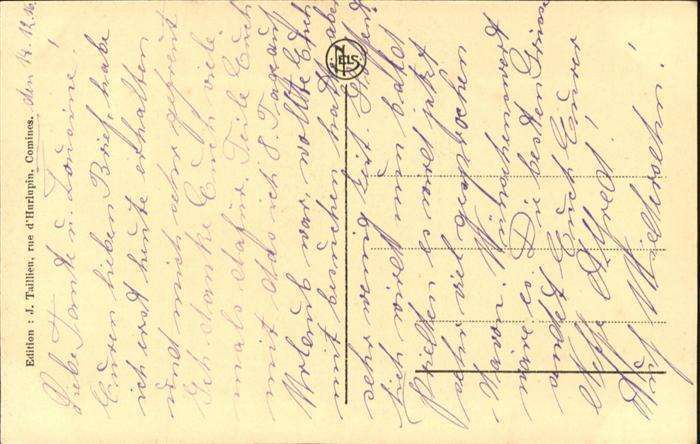 den 14.12.16
Liebe Tante u. Cousine!
Euren lieben Brief habe
ich erst heute erhalten
und mich sehr gefreut
Ich danke Euch viele
mals dafür. Teile Euch
mit das ich 8 Tage auf
Urlaub war, wollte Euch
mit besuchen hatte aber
sehr wenig Zeit.
Ich wird nun bald
Frieden es wird jetzt
sehr viel gesprochen
davon. Wünschenswert
wäre es. Die besten Grüße
sendet Euch Euer
Neffe Alfred!
Auf Wiedersehn!
Edition : J. Taillieu, rue d'Hurlupin, Comines.